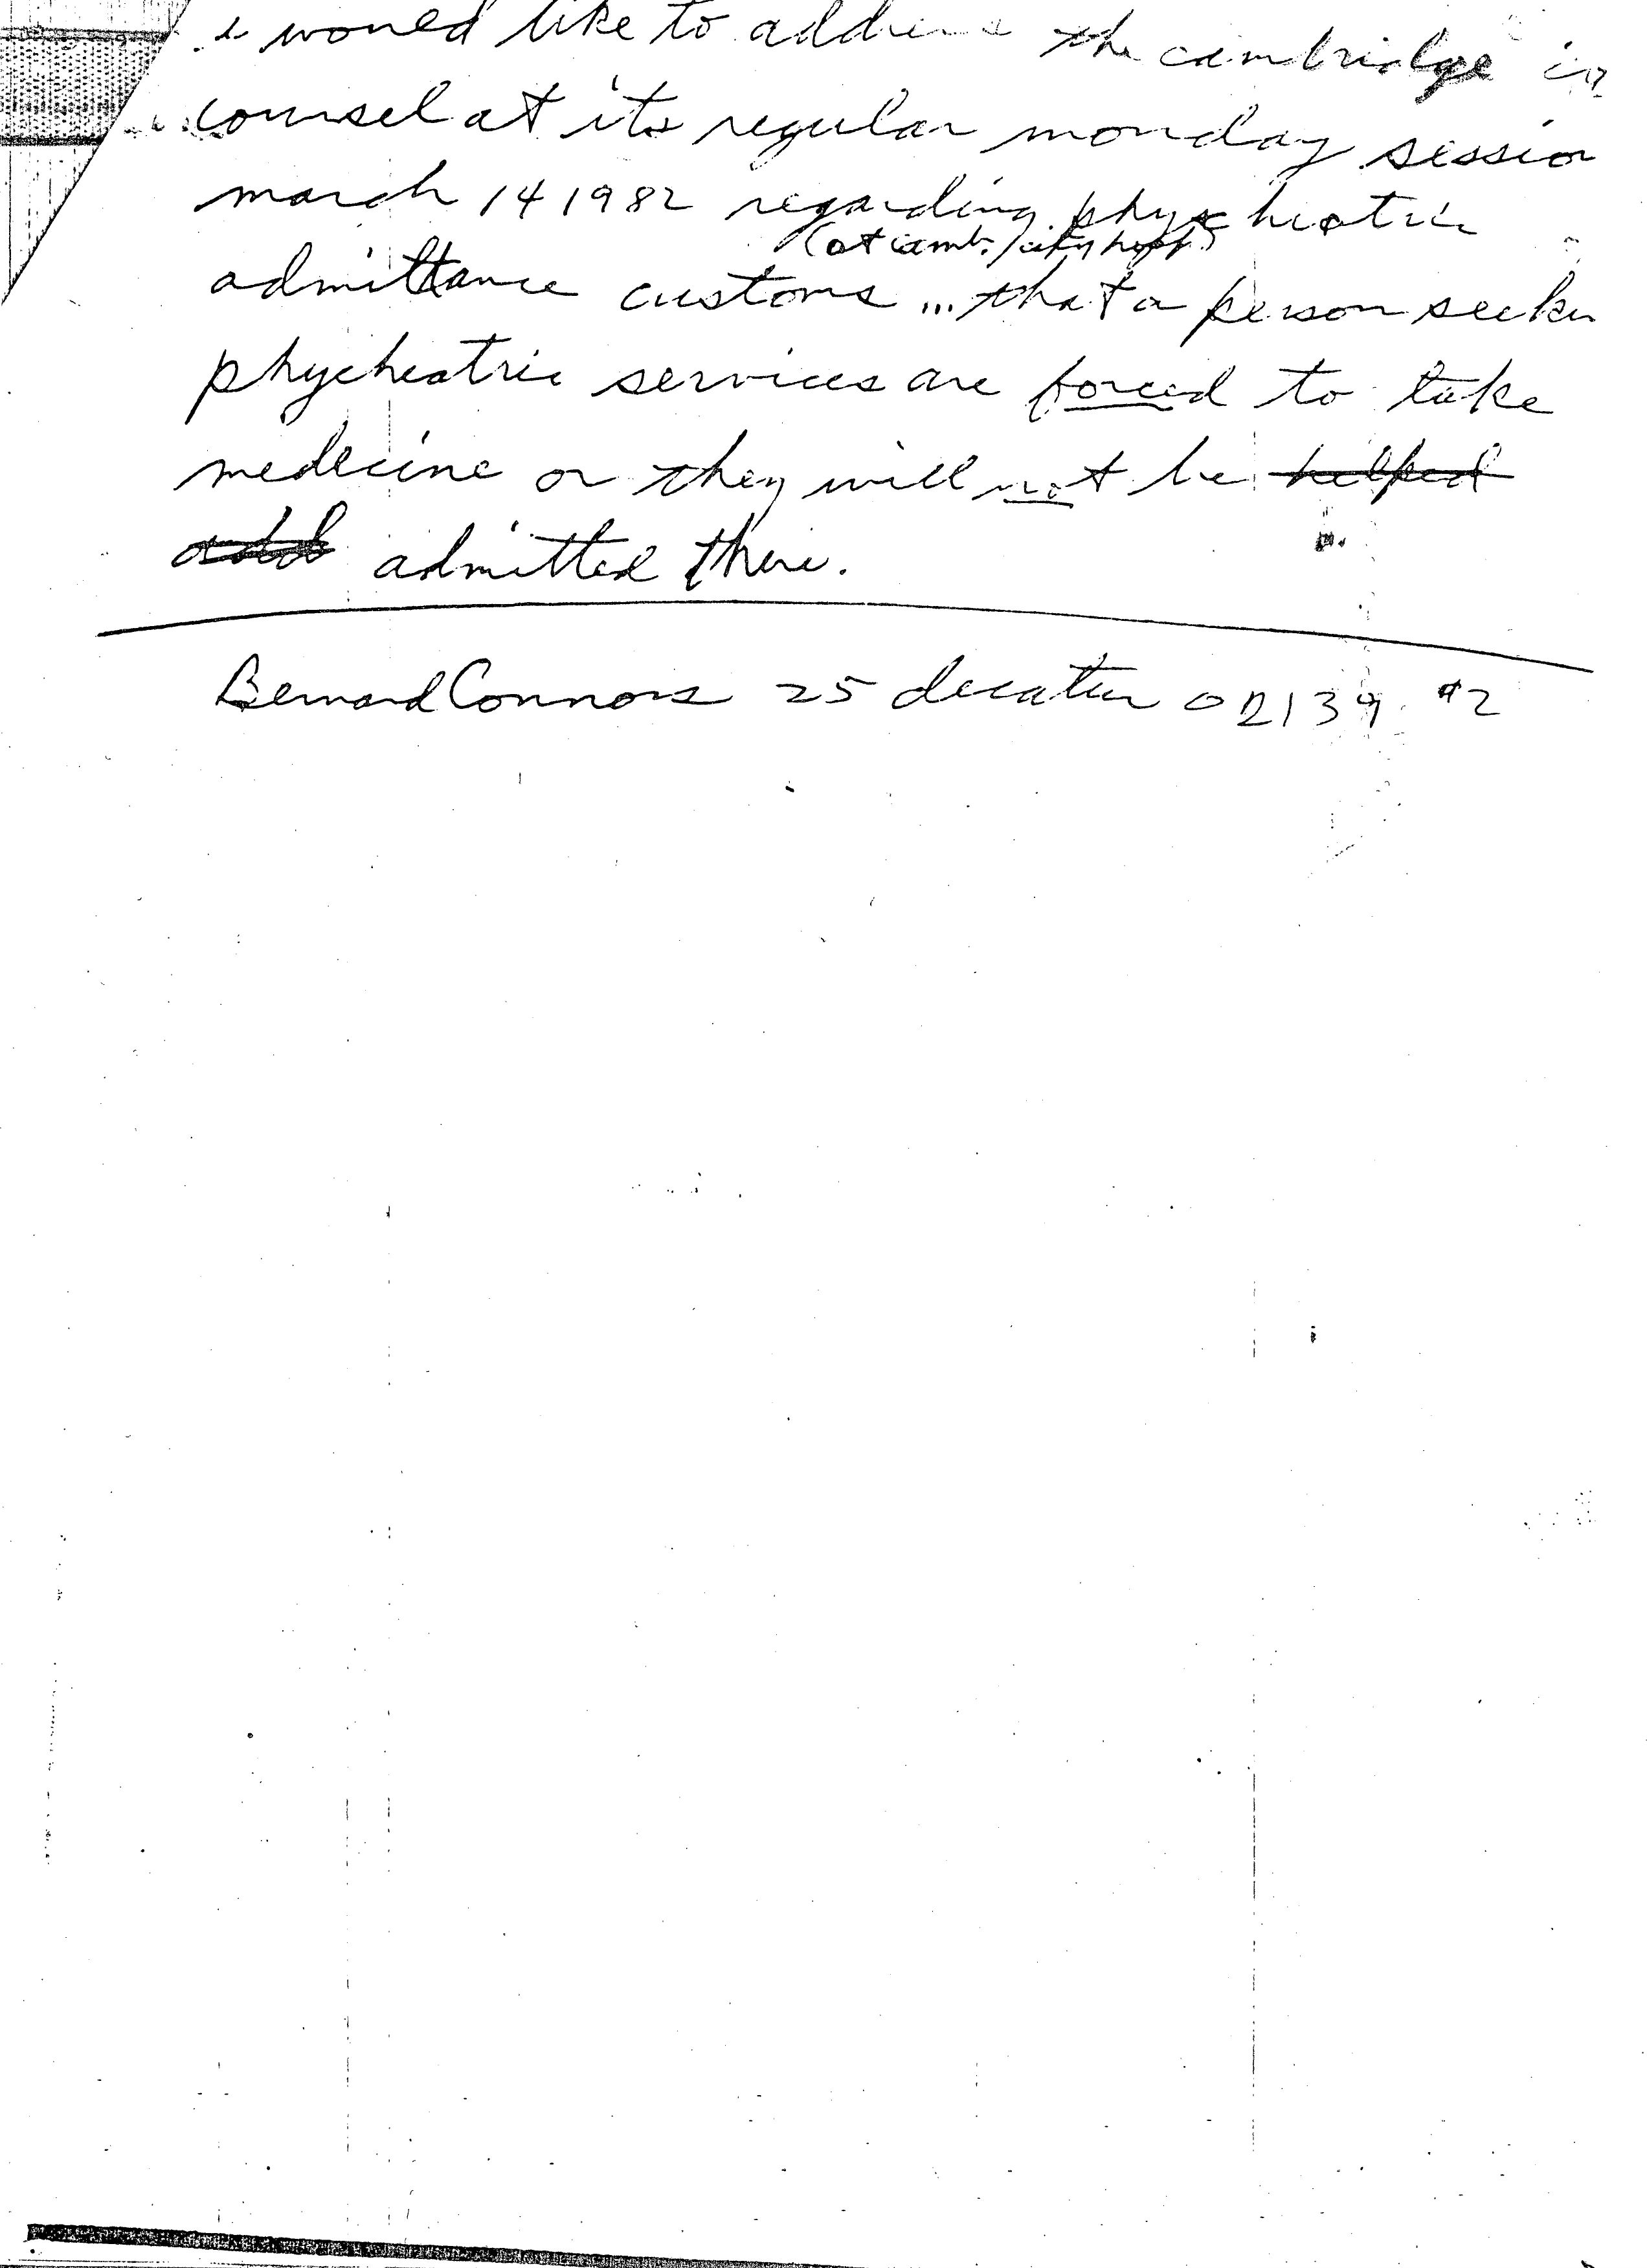 i would like to address the cambridge
counsel at its regular monday session
march 14 1982 regarding phychiatric
(at camb. city hosp.)
admittance customs ... that a person
phycheatric services are forced to take
medecine or they will not be helped
admitted there.
Bernard Connors 25 decatur 02139 #2